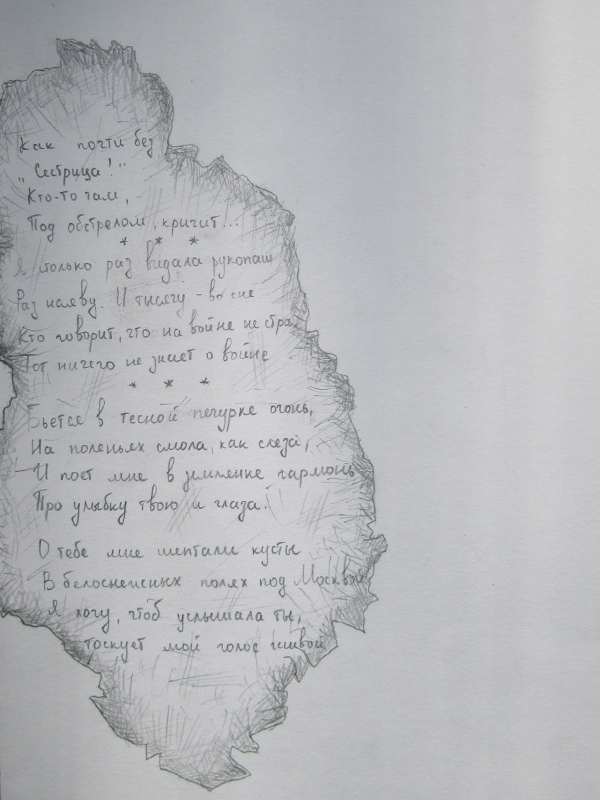 Как почти без
„Сестрица!"
Кто-то там,
Под обстрелом, кричит...
* * *
Я столько раз видала рукопаш
Раз наяву. И тысячу - во сне
Кто говорит, что на войне не стра
Тот ничего не знает о войне
* * *
Бьется в тесной печурке огонь,
На поленьях смола, как слеза,
И поет мне в землянке гармонь
Про улыбку твою и глаза.
О тебе мне шептали кусты
В белоснежных полях под Москвой
Я хочу, чтоб услышала ты,
тоскует мой голос живой